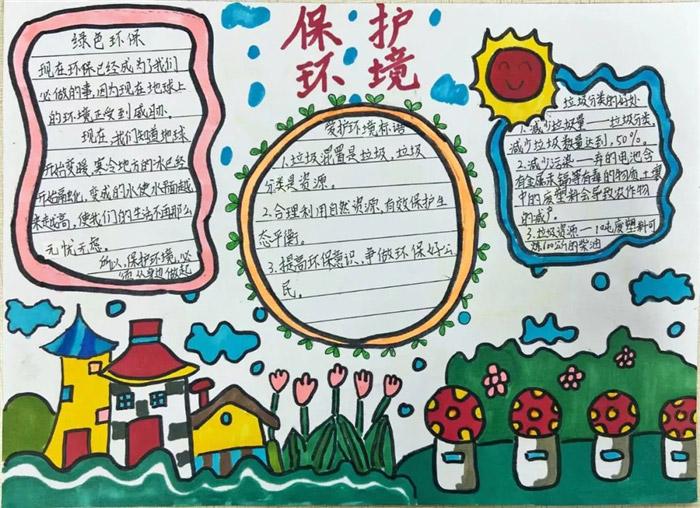 保护
环境
绿色环保
现在环保已经成为了我们
必做的事,因为现在地球上
的环境正受到威胁.
现在,我们知道地球
开始变暖,寒冷地方的冰已经
开始融化,变成的水使水面越
来越高,使我们的生活不再那么
无忧无虑.
所以,保护环境,必
须从身边做起
爱护环境标语
1.垃圾混置是垃圾,垃圾
分类是资源.
2.合理利用自然资源,有效保护生
态平衡.
3.提高环保意识,争做环保好公
民.
垃圾分类的好处
1.减少垃圾量——垃圾分类,
减少垃圾数量达到50%.
2.减少污染——弃的电池含
有金属汞镉等有毒的物质,土壤
中的废塑料会导致农作物
的减产.
3.垃圾资源——1吨废塑料可
炼600公斤的柴油